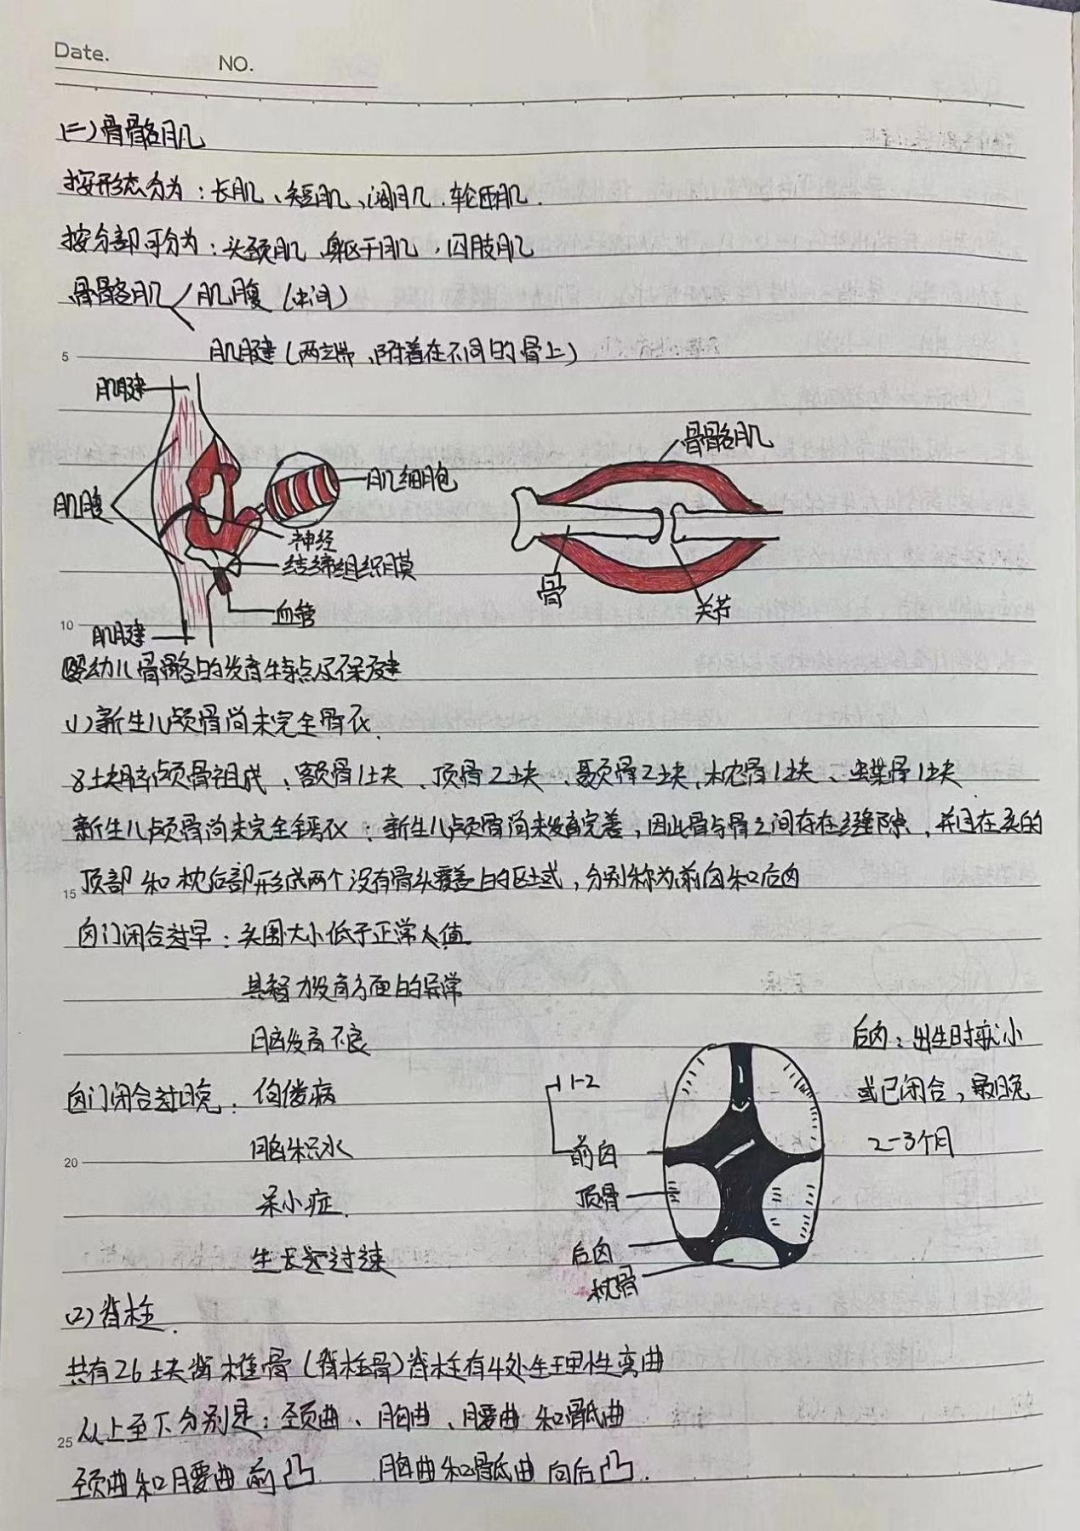 Date.
NO.
(二)骨骼肌
按形态分为：长肌、短肌、阔肌、轮匝肌.
按分部可分为：头颈肌、躯干肌，四肢肌
骨骼肌 肌腹(中间)
肌腱(两端、附着在不同的骨上)
5
肌腱
肌腱
肌细胞
神经
结缔组织膜
血管
10
肌腱
骨骼肌
骨
关节
婴幼儿骨骼的发育特点及保健
(1)新生儿颅骨尚未完全骨化.
8块脑颅骨组成、额骨1块、顶骨2块、颞骨2块、枕骨1块、蝶骨1块
新生儿颅骨尚未完全骨化：新生儿颅骨尚未发育完善，因此骨与骨之间存在缝隙，并且在头的
15 顶部和枕后部形成两个没有骨头覆盖的区域，分别称为前囟和后囟
囟门闭合过早：头围大小低于正常值
智力发育方面的异常
脑发育不良
囟门闭合过晚：佝偻病
脑积水
20
呆小症.
生长过速
1-2
前囟
顶骨
后囟
枕骨
后囟：出生时较小
或已闭合，最晚
2-3个月
(2)脊柱.
共有26块脊椎骨(脊柱骨)脊柱有4处生理性弯曲
从上至下分别是：颈曲、胸曲、腰曲和骶曲
25
颈曲和腰曲前凸 胸曲和骶曲向后凸.